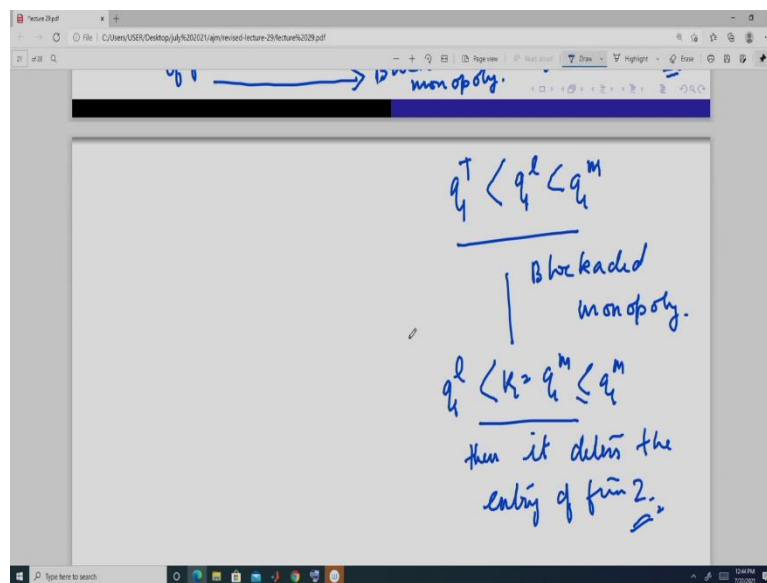 lecture 29.pdf
File | C:/Users/USER/Desktop/july%202021/ajm/revised-lecture-29/lecture%2029.pdf
21 of 28 Page view Read aloud Draw Highlight Erase
monopoly.
q₁ᵀ < q₁ˡ < q₁ᵐ
Blockaded
monopoly.
q₁ˡ < K₁ = q₁ᵐ ≤ q₁ᵐ
then it deters the
entry of firm 2.
Type here to search
12:44 PM